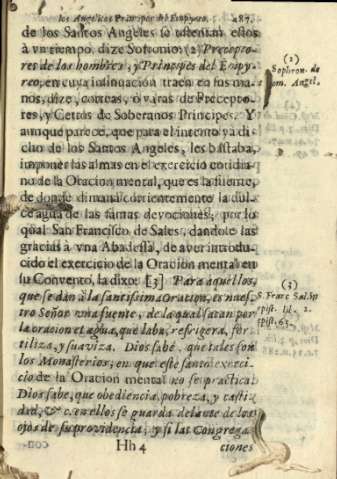 los Angelicos Principes del Empyreo. 487
de los Santos Angeles se ostentan estos
à vn tiempo, dize Sofronio: (2) Precepto-
res de los hombres, y Principes del Empy-
reo; en cuya insinuacion traen en sus ma-
nos, dize, correas, ò varas de Precepto-
res, y Cetros de Soberanos Principes. Y
aunque parece, que para el intento ya di-
cho de los Santos Angeles, les bastaba,
imponer las almas en el exercicio cotidia-
no de la Oracion mental, que es la fuente,
de donde dimana corrientemente la dul-
ce agua de las santas devociones, por lo
qual San Francisco de Sales, dandole las
gracias à vna Abadessa, de aver introdu-
cido el exercicio de la Oracion mental en
su Convento, la dixo: [3] Para aquellos,
que se dàn à la santissima Oracion, es nues-
tro Señor vna fuente, de la qual sacan por
la oracion el agua, que laba, refrigera, fer-
tiliza, y suaviza. Dios sabe, que tales son
los Monasterios, en que este santo exerci-
cio de la Oracion mental no se practica:
Dios sabe, que obediencia, pobreza, y casti-
dad, &c. en ellos se guarda delante de los
ojos de su providencia; y si las Congrega-
Hh 4 ciones
(2)
Sophron. de
om. Angel.
(3)
S. Franc. Sal. in
Epist. lib. 2.
Epist. 63.